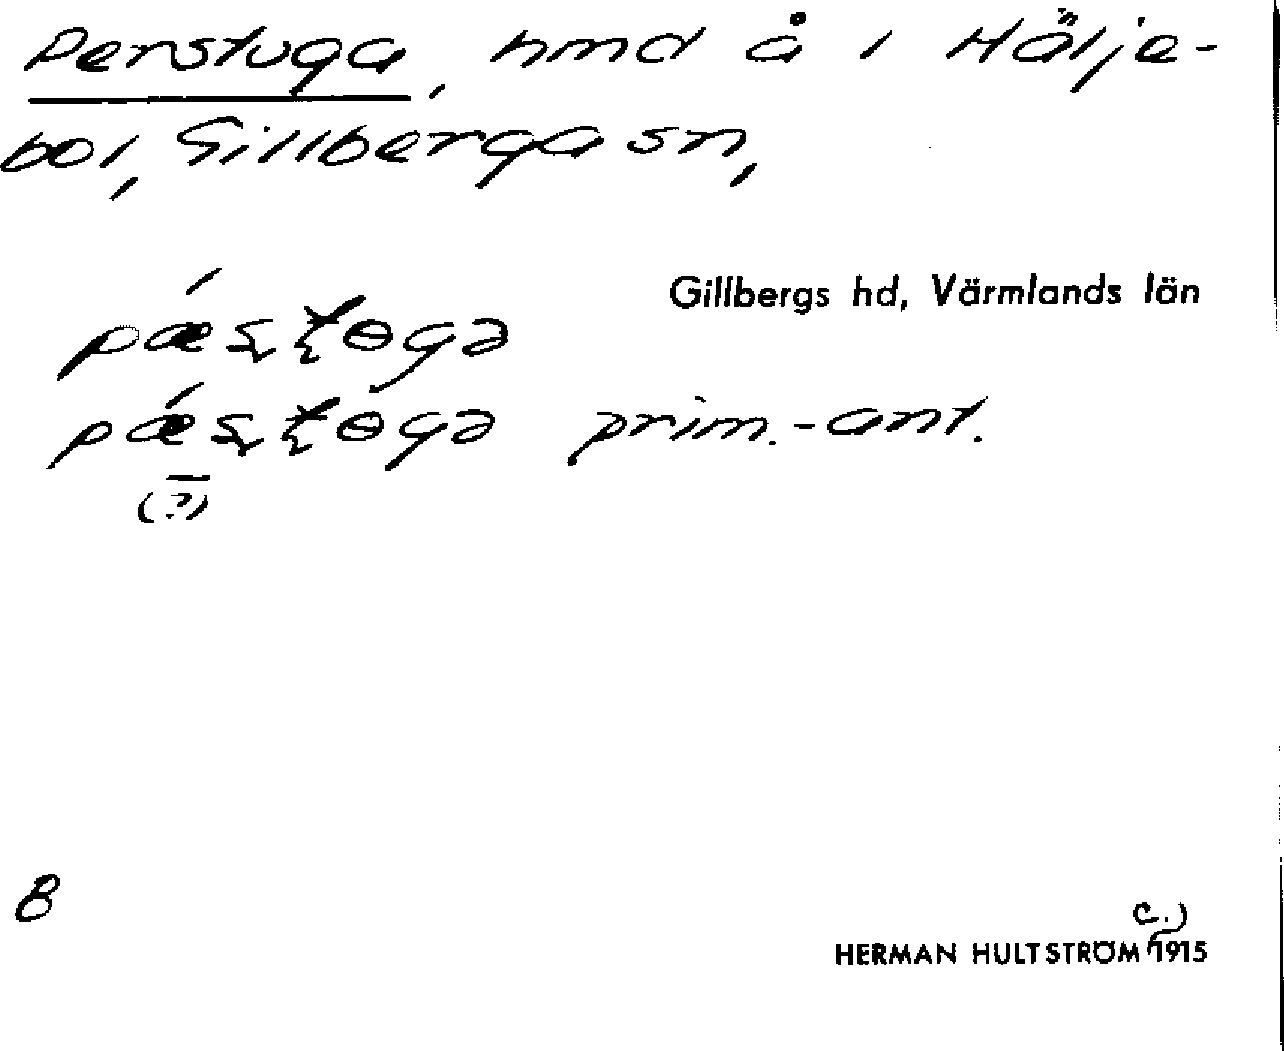 Perstuga, hmd å 1 Hälje-
bol, Gillberga sn,
Gillbergs hd, Värmlands län
pǽʂʈɵgə
pǽʂʈɵgə prim.-ant.
(?)
B
c.)
HERMAN HULTSTRÖM 1915